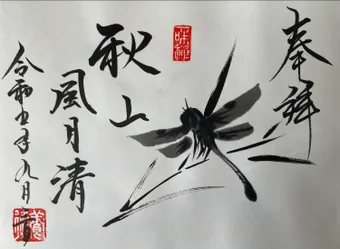 奉拝
秋山
風月清
令和五年九月